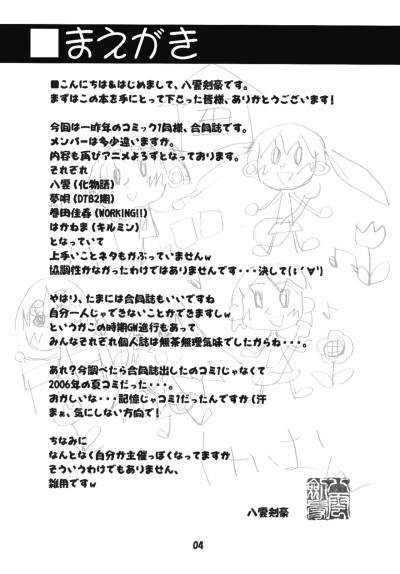 ■まえがき
■こんにちは&はじめまして、八雲剣豪です。
まずはこの本を手にとって下さった皆様、ありがとうございます!
今回は一昨年のコミック1同様、合同誌です。
メンバーは多少違いますか。
内容も再びアニメようずとなっております。
それぞれ
八雲(化物語)
夢唄(DTB2期)
巻田佳春(WORKING!!)
はかねま(キルミン)
となっていて
上手いことネタもかぶっていませんw
協調性かなかったわけではありませんです・・・決して(;´∀`)
やはり、たまには合同誌もいいですね
自分一人じゃできないことかできますしw
というかこの時期GW進行もあって
みんなそれぞれ個人誌は無茶無理気味でしたからね・・・。
あれ?今調べたら合同誌出したのコミ1じゃなくて
2006年の夏コミだった・・・。
おかしいな・・・記憶じゃコミ1だったんですか(汗
まぁ、気にしない方向で!
ちなみに
なんとなく自分か主催っぽくなってますか
そういうわけでもありません、
雑用ですw
八雲剣豪
八雲剣豪
04